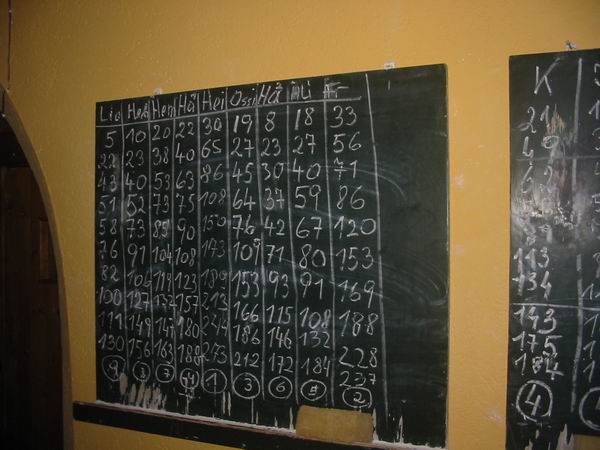 Lio Hei Hen Hä Hei Ossi Hä Mi Fr
5 10 20 22 30 19 8 18 33
22 23 38 40 65 27 23 27 56
43 40 53 63 86 45 30 40 71
51 52 73 75 108 64 37 59 86
58 73 85 90 150 76 42 67 120
76 91 104 108 173 109 71 80 153
82 106 119 123 189 153 93 91 169
100 127 132 157 213 166 115 108 188
111 149 147 180 186 146 132 228
130 156 163 188 273 212 172 184 237
9 7 1 3 6 2
K
21
113
134
143
175
184
4